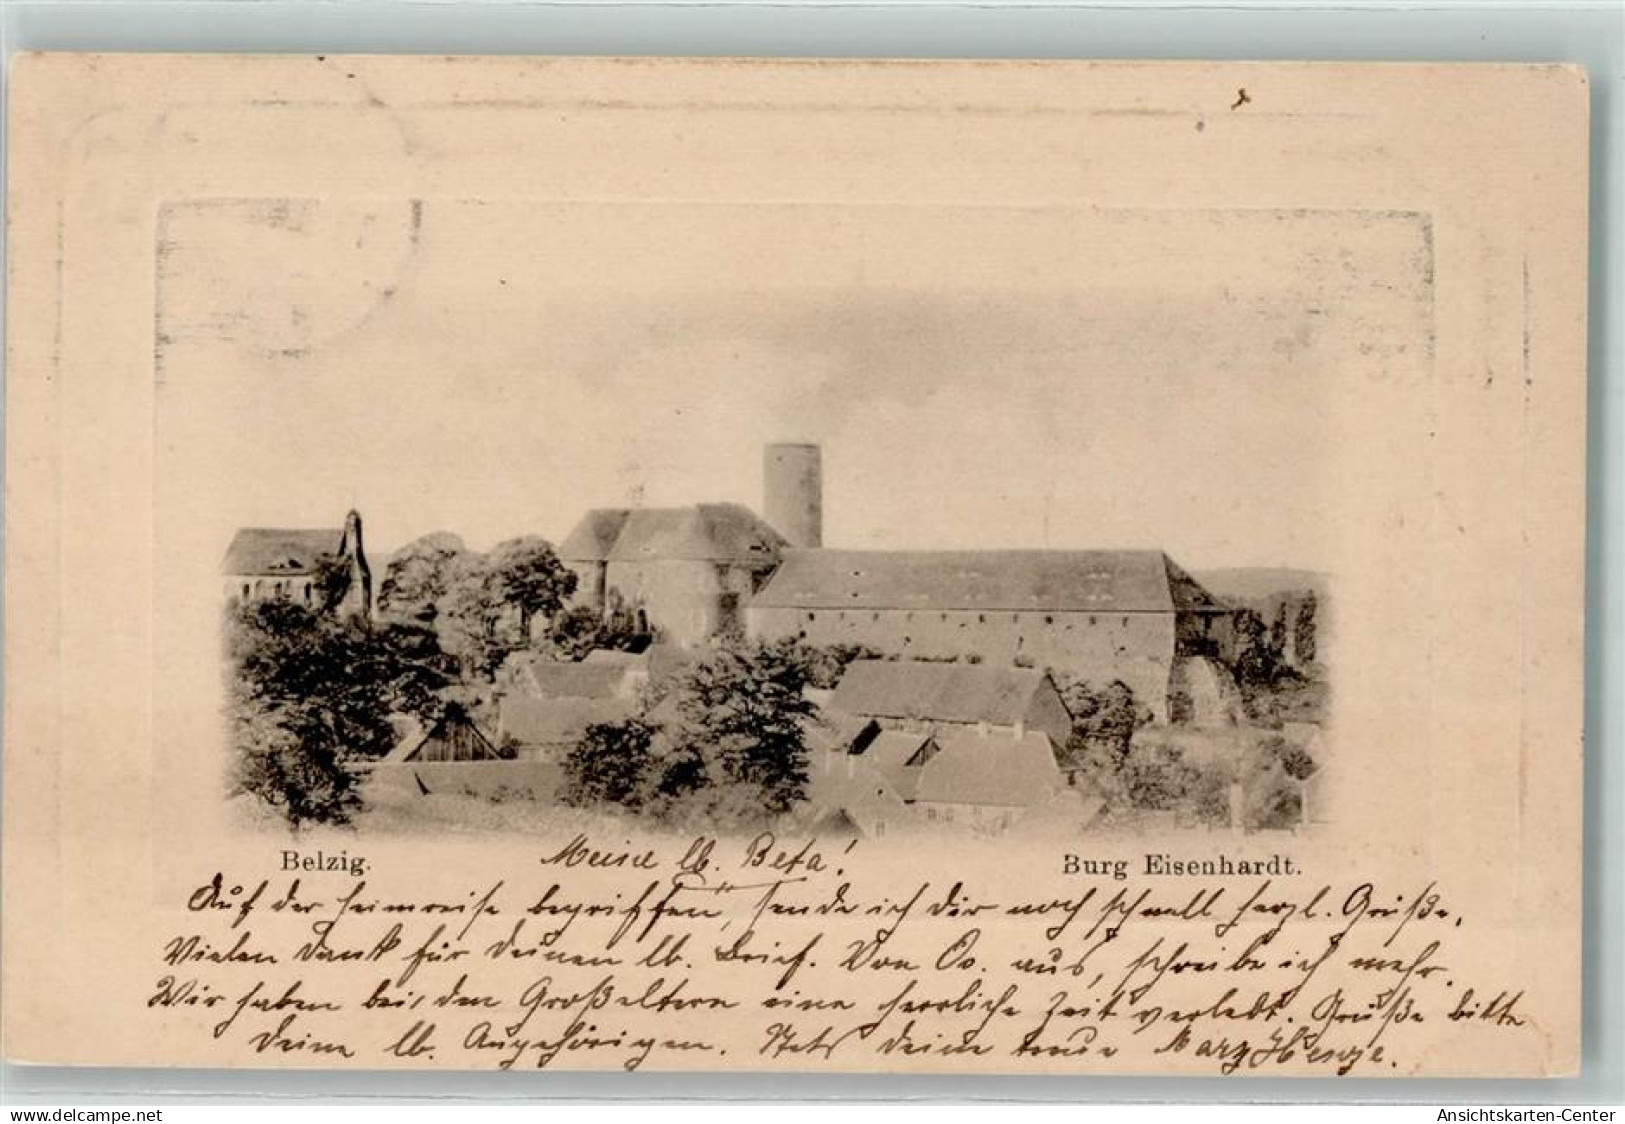 Belzig.
Meine lb. Beta!
Burg Eisenhardt.
Auf der Heimreise begriffen, sende ich dir noch schnell herzl. Grüße,
Vielen Dank für Deinen lb. Brief. Von Oo. aus, schreibe ich mehr.
Wir haben bei den Großeltern eine herrliche Zeit verlebt. Grüße bitte
Deine lb. Angehörigen. Stets Deine treue
www.delcampe.net
Ansichtskarten-Center